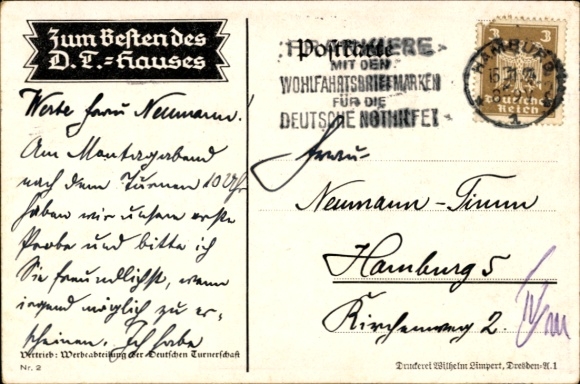 Zum Besten des
D. T.-Hauses
Werte Frau Neumann!
Am Montagabend
nach dem Turnen 10 Uhr
haben wir unsere erste
Probe und bitte ich
Sie freundlichst, wenn
irgend möglich zu er-
scheinen. Ich habe
Vertrieb: Werbeabteilung der Deutschen Turnerschaft
Nr. 2
Postkarte
MIT DEN
WOHLFAHRTSBRIEFMARKEN
FÜR DIE
DEUTSCHE NOTHILFE!
HAMBURG
1
3
3
Deutsches
Reich
Frau
Neumann-Timm
Hamburg 5
Kirchenweg 2.
Druckerei Wilhelm Limpert, Dresden-A. 1